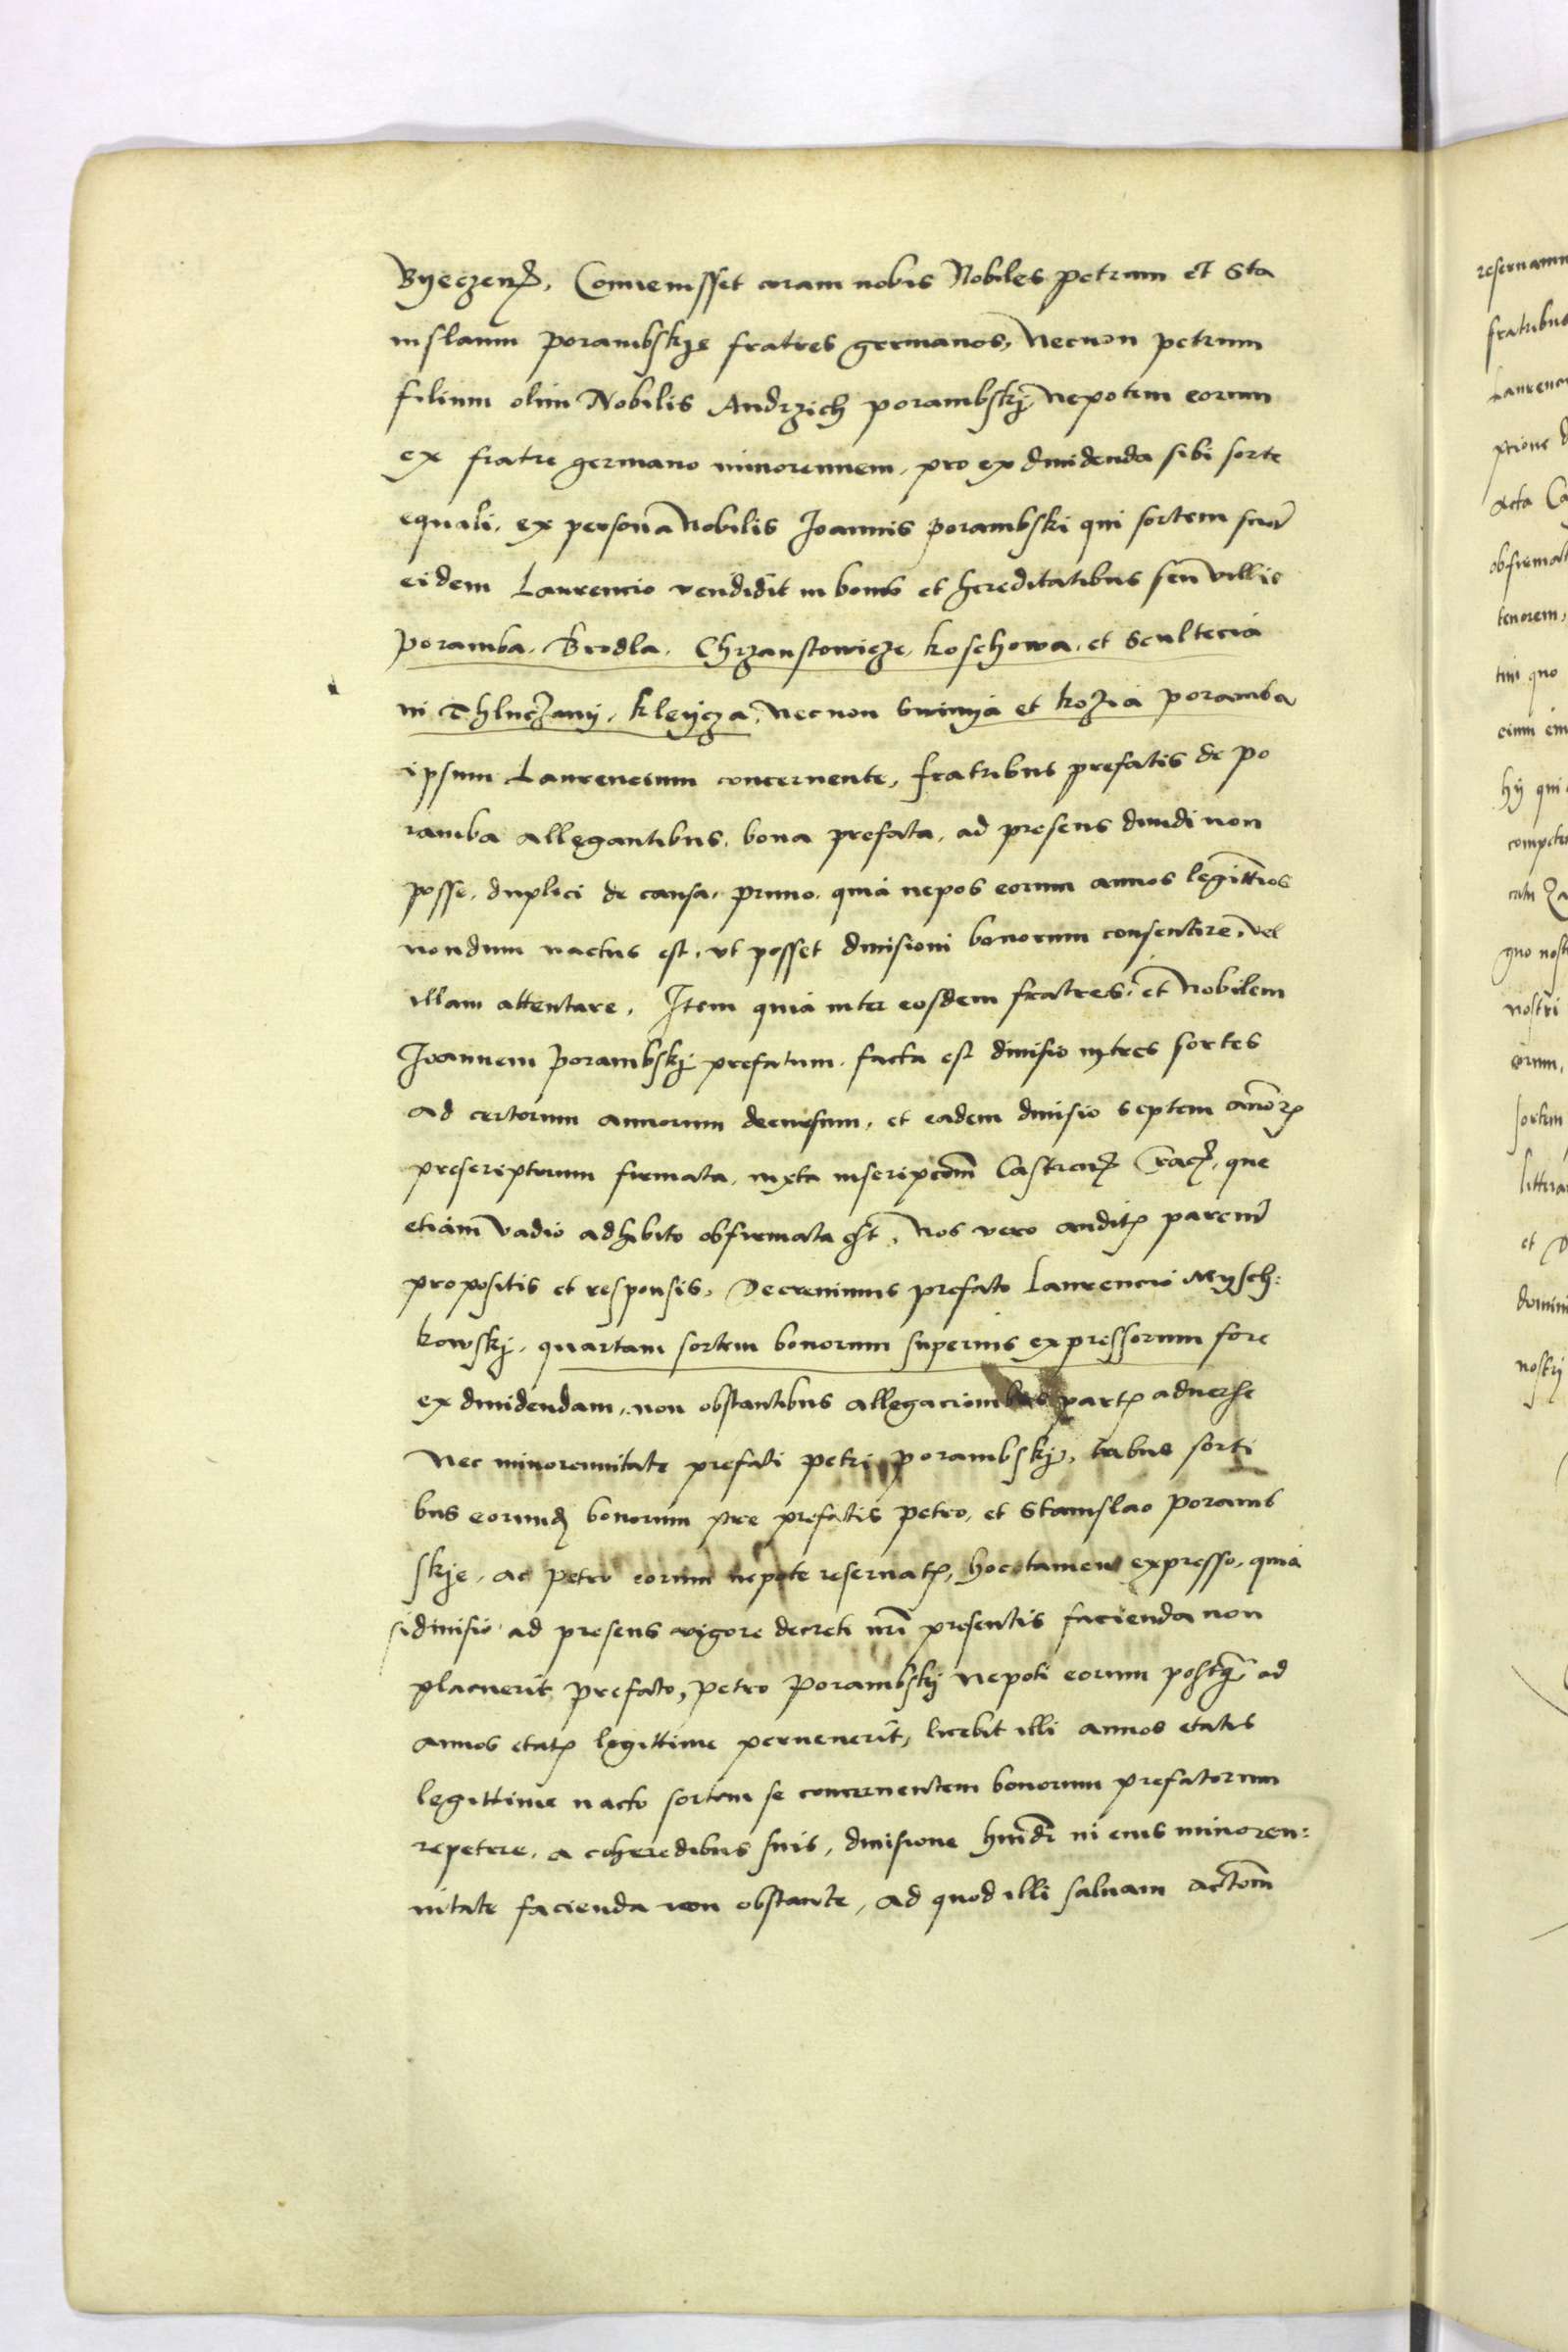 Byeczen̄, Conuenisset coram nobis Nobiles petrum et Sta
nislaum porambskie fratres germanos, Necnon petrum
filium olim Nobilis Andrzich porambskj Nepotem eorum
ex fratre germano minorennem, pro ex diuidenda sibi sorte
equali, ex persona Nobilis Joannis porambski qui sortem suā
eidem Laurencio vendidit in bonis et hereditatibus seu villis
poramba, Brodla, Chrzanstowicze, koschowa, et Scultecia
in Thluczany, kleycza, Necnon Swinya et kozia poramba
ipsum Laurencium concernente, fratribus prefatis de po
ramba allegantibus, bona prefata, ad presens diuidi non
posse, duplici de causa, primo, quia nepos eorum annos legittimos
nondum nactus est, vt posset diuisioni bonorum consentire, vel
illam attentare, Item quia inter eosdem fratres, et Nobilem
Joannem porambskj prefatum, facta est diuisio in tres sortes
ad certorum annorum decursum, et eadem diuisio septem annoꝝ
prescriptorum firmata, iuxta inscripcōm Castren̄ Crac̄, que
etiam vadio adhibito obfirmata est, Nos vero audit̄ parcium̄
propositis et responsis, Decreuimus prefato Laurencio Mysch:
kowskj, quartam sortem bonorum superius expressorum fore
ex diuidendam, non obstantibus allegacionibus part̄ aduerse
Nec minorennitate prefati petri porambskj, tribus sorti
bus eorund̄ bonorum pro prefatis petro, et Stanislao poramb
skie, ac petro eorum nepote reseruat̄, hoc tamen expresso, quia
si diuisio ad presens vigore decreti nr̄i presentis facienda non
placuerit prefato, petro porambskj Nepoti eorum postq̄ ad
annos etat̄ legittime peruenerit, licebit illi annos etatis
legittime nacto sortem se concernentem bonorum prefatorum
repetere, a coheredibus suis, diuisione hm̄di in eius minoren:
nitate facienda non obstante, ad quod illi saluam actōm